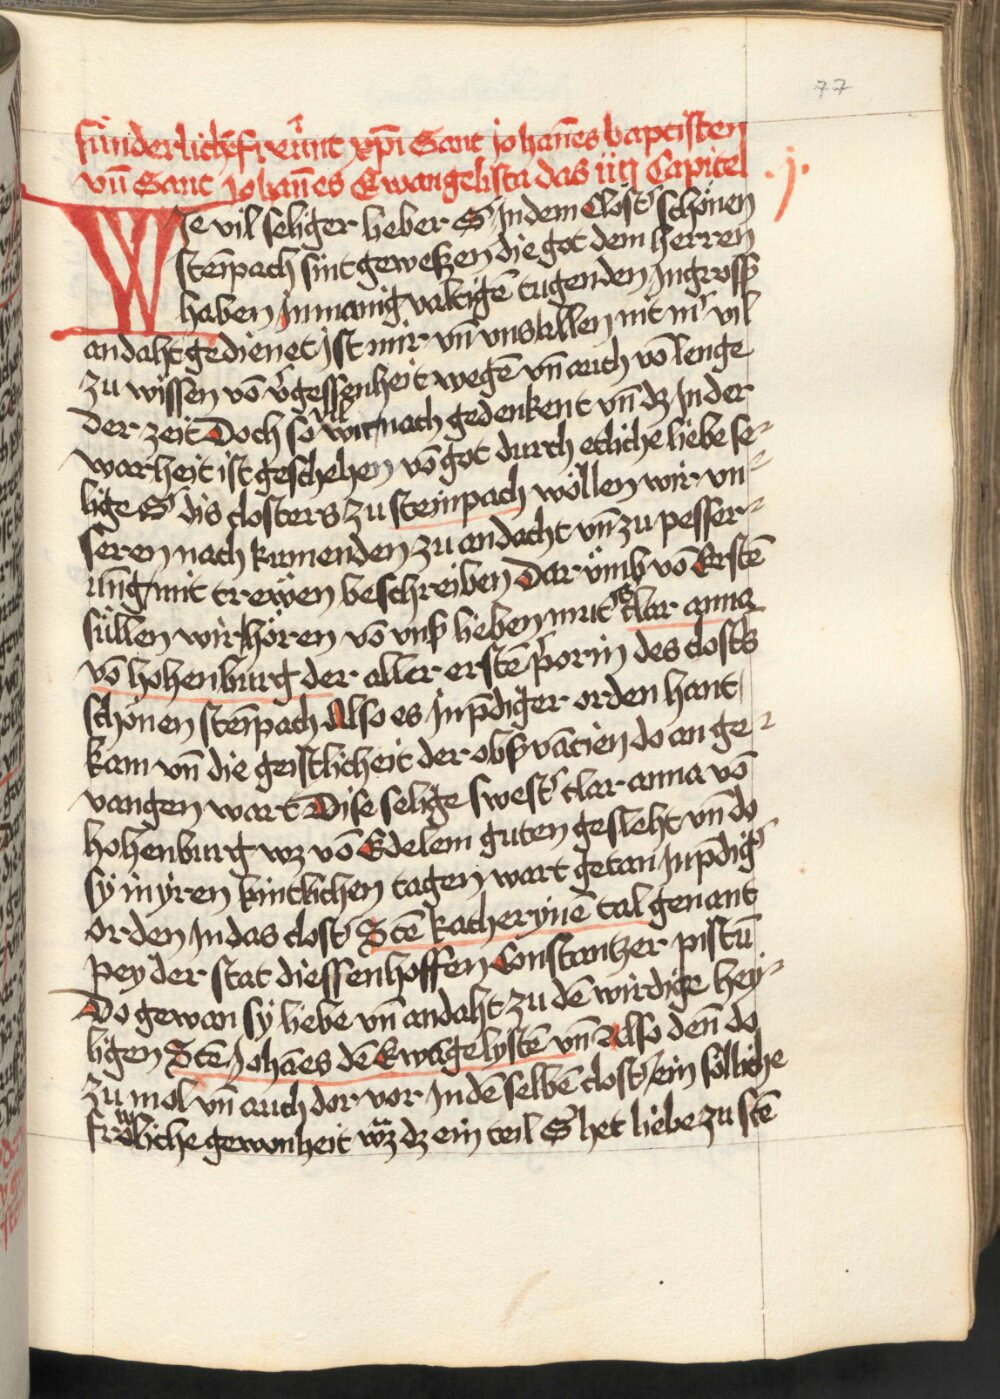 77
sunderlichē freünt xp̄i Sant johañes baptisten
vñ Sant johañes Ewangelista das iiij Capitel .j.
Wie vil seliger lieber S̓ Jn dem Clost̓ schönen
steinpach sint geweßen die got dem herren
haben Jn manig valtigē tugenden Jn gross̓
andaht gedienet Jst mir vñ vns allen nit m̓ vil
zu wissen vō v̓gessenheit wegē vñ auch vō lenge
der zeit Doch so wir nach gedenkent vñ dz Jn der
warheit ist geschehen vō got durch etliche liebe se⸗
lige S̓ dis closters zu steinpach wöllen wir vn⸗
seren nach kumenden zu andacht vñ zu pesser⸗
ūng mit trewën beschreiben Dar vmb vō Erstē
süllen wir hören vō vnß lieben mut̓ S̓ clar anna
vō hohenburg der aller erstē p̓orin des clost̓s
schönen steinpach Also es Jn p̄diger orden hant
kam vñ die geistlicheit der obß̓vācien do an ge⸗
vangen wart Dise selige swest̓ clar anna vō
hohenburg wz vō Edelem guten gesleht vñ do
sy in yren kintlichen tagen wart getan Jn p̄dig̓
orden Jn das clost̓ Stē katherynē tal genant
pey der stat diessenhoffen Constantzer pistū
Do gewan sy liebe vñ andaht zu dē wirdigē hey⸗
ligen Stē Johāes dē Ewāgelystē vñ Also deñ do
zu mol vñ auch dor vor Jn dē selbē clost̓ ein sölliche
fröwliche gewonheit wz dz ein teil S̓ het liebe zu stē